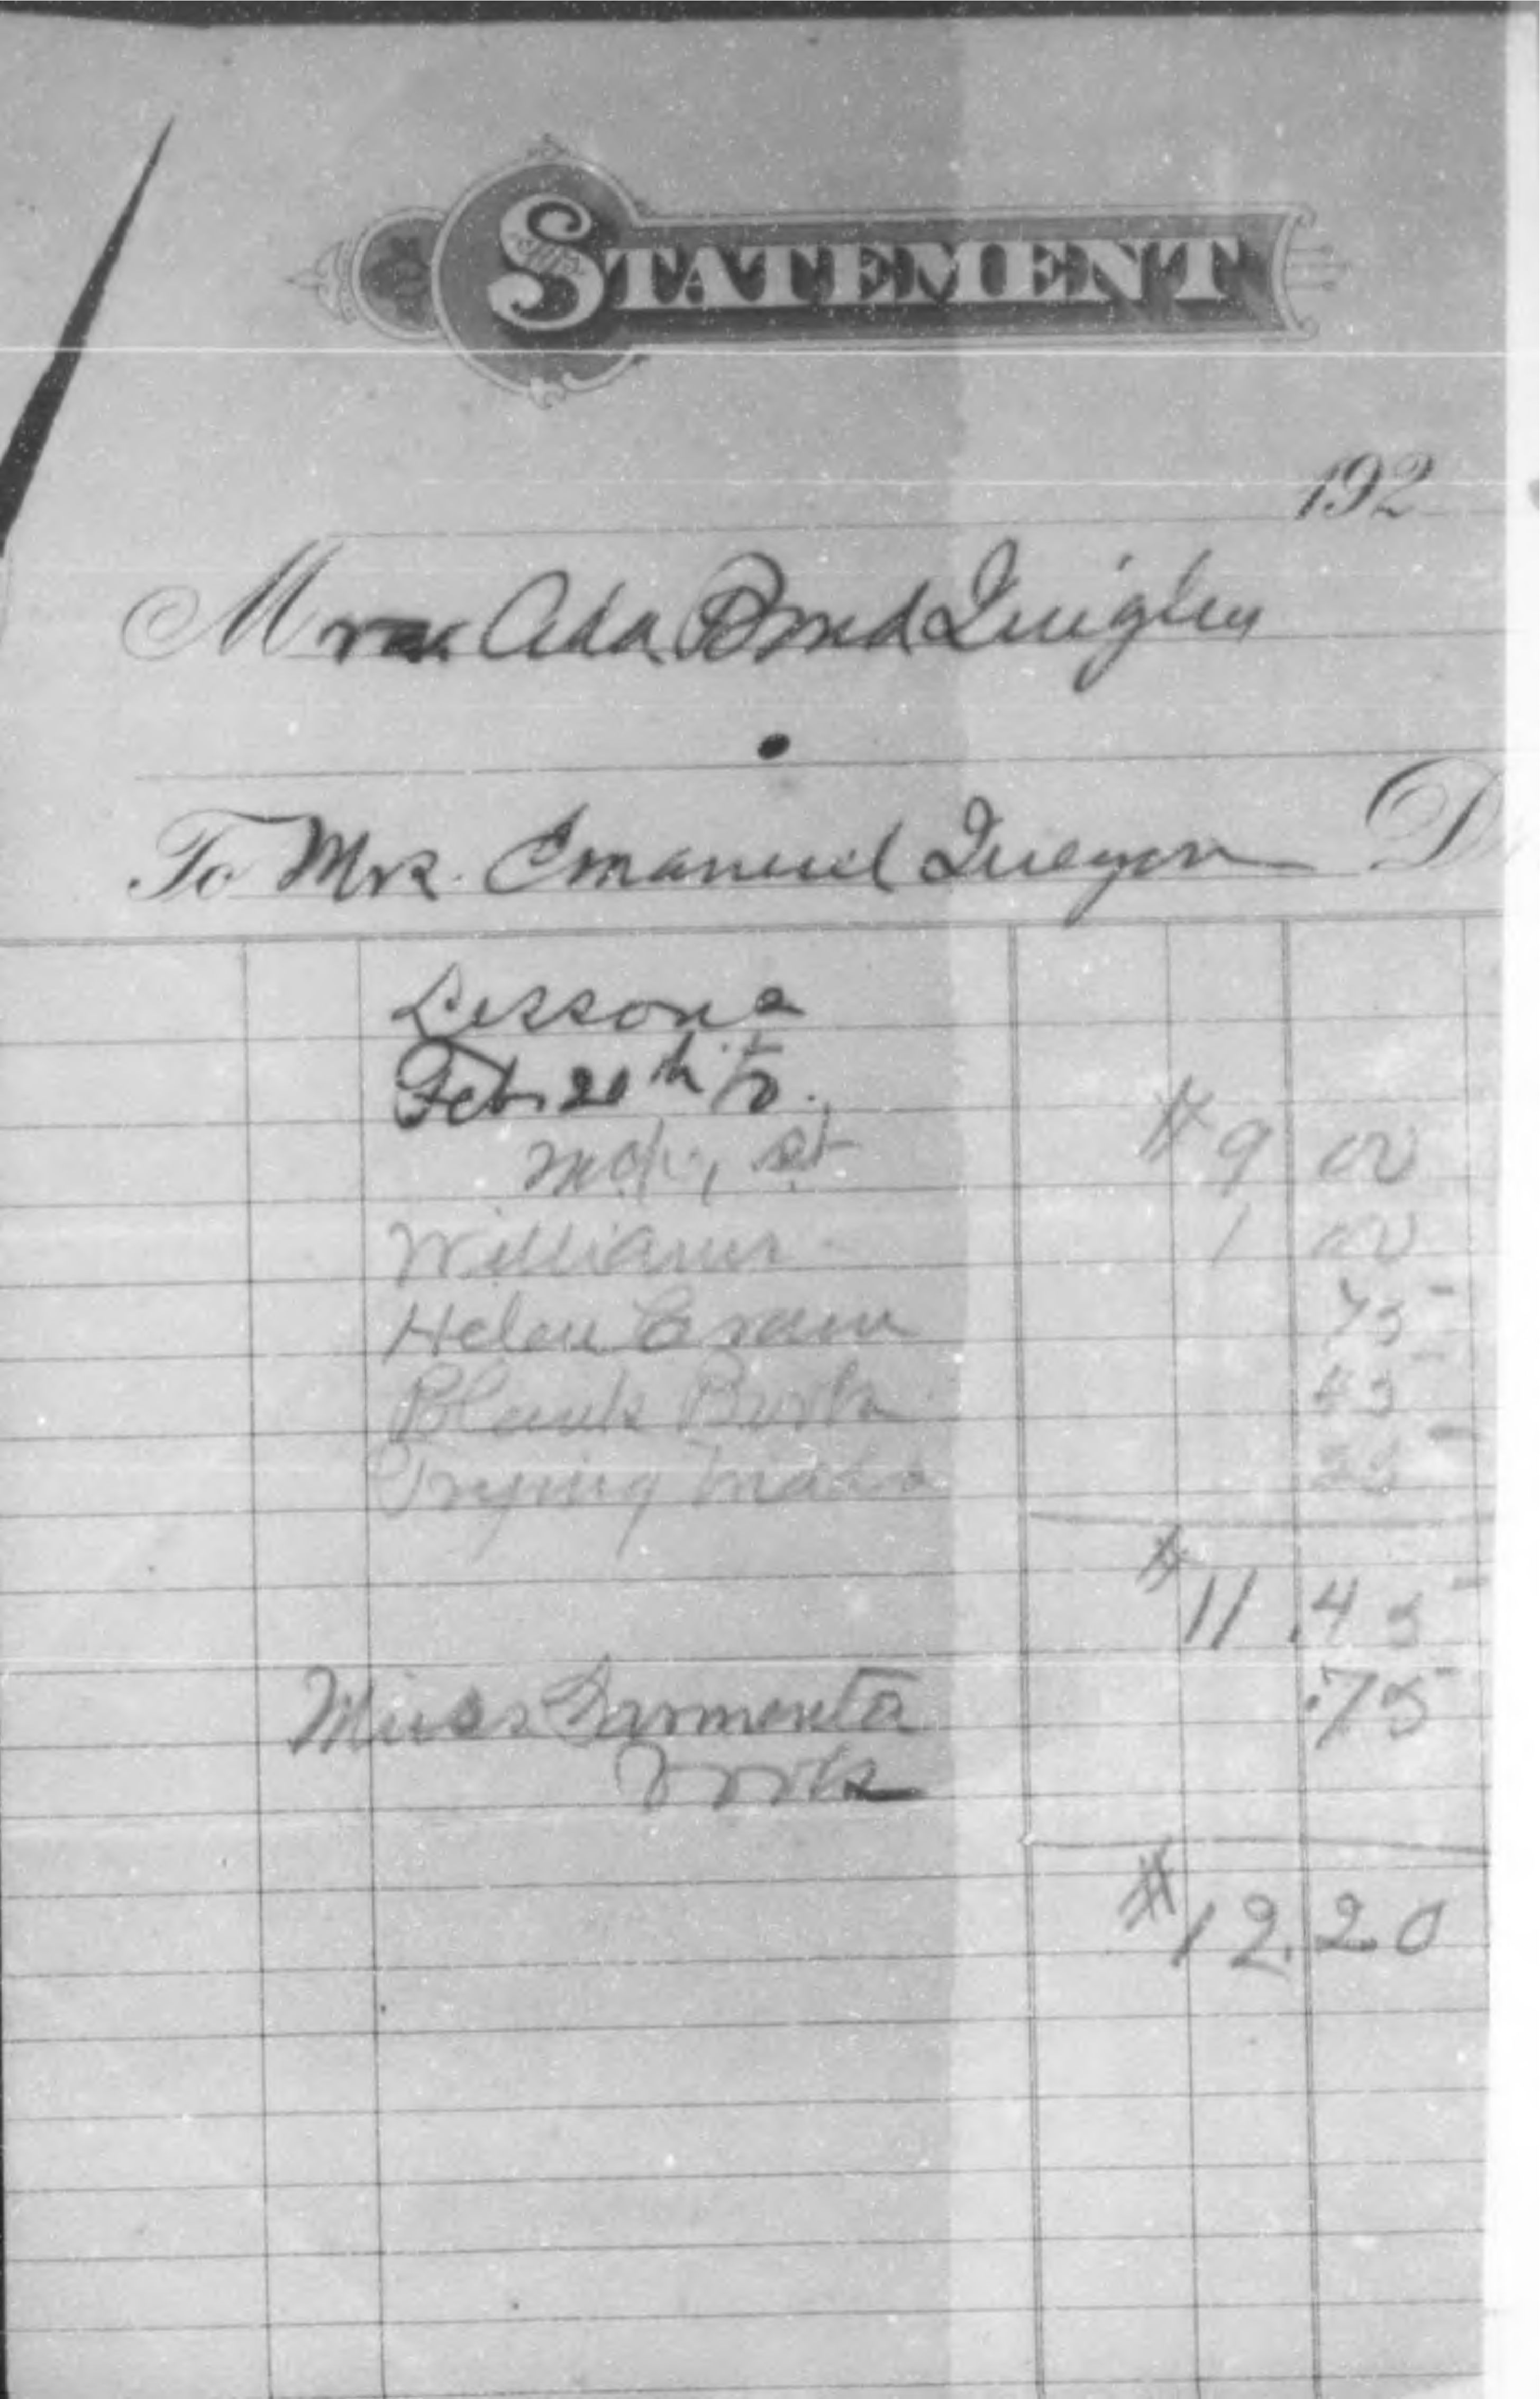 STATEMENT
192
Mrs. Ada Bond Quigley
To Mrs. Emanuel D
Lessons
Feb. 20th to
$9 00
Williams 1 00
Helen 75
Blank Books 45
Trying 25
$11.45
Miss Sarmento .75
$12.20